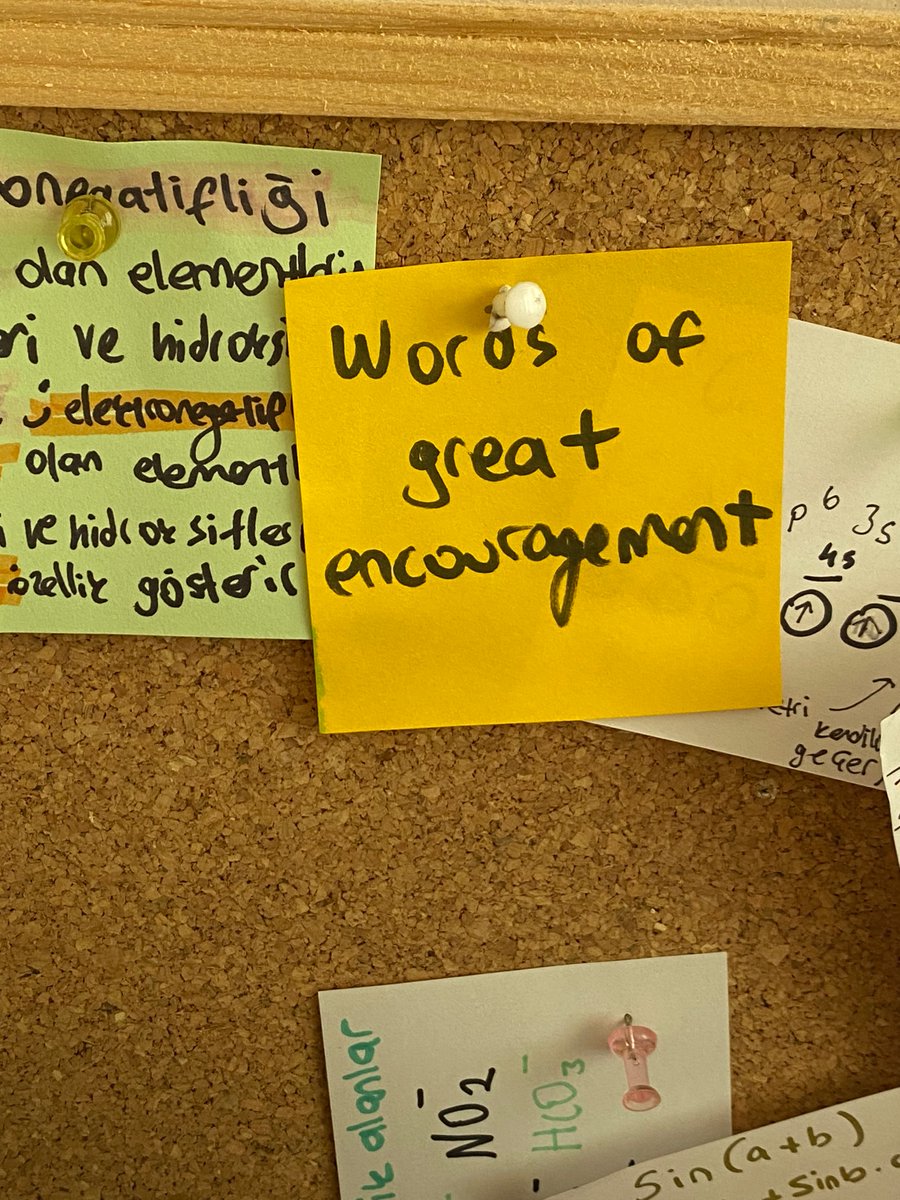 onegatifliği
olan elementlerin
ve hidroksi
elektronegatif
olan element
ve hidroksitles
özellik gösterir
Words of
great
encouragement
p⁶ 3s
4s
↑
kendil
geçer
alanlar
NO₂⁻
HCO₃⁻
Sin(a+b)
+ Sinb.